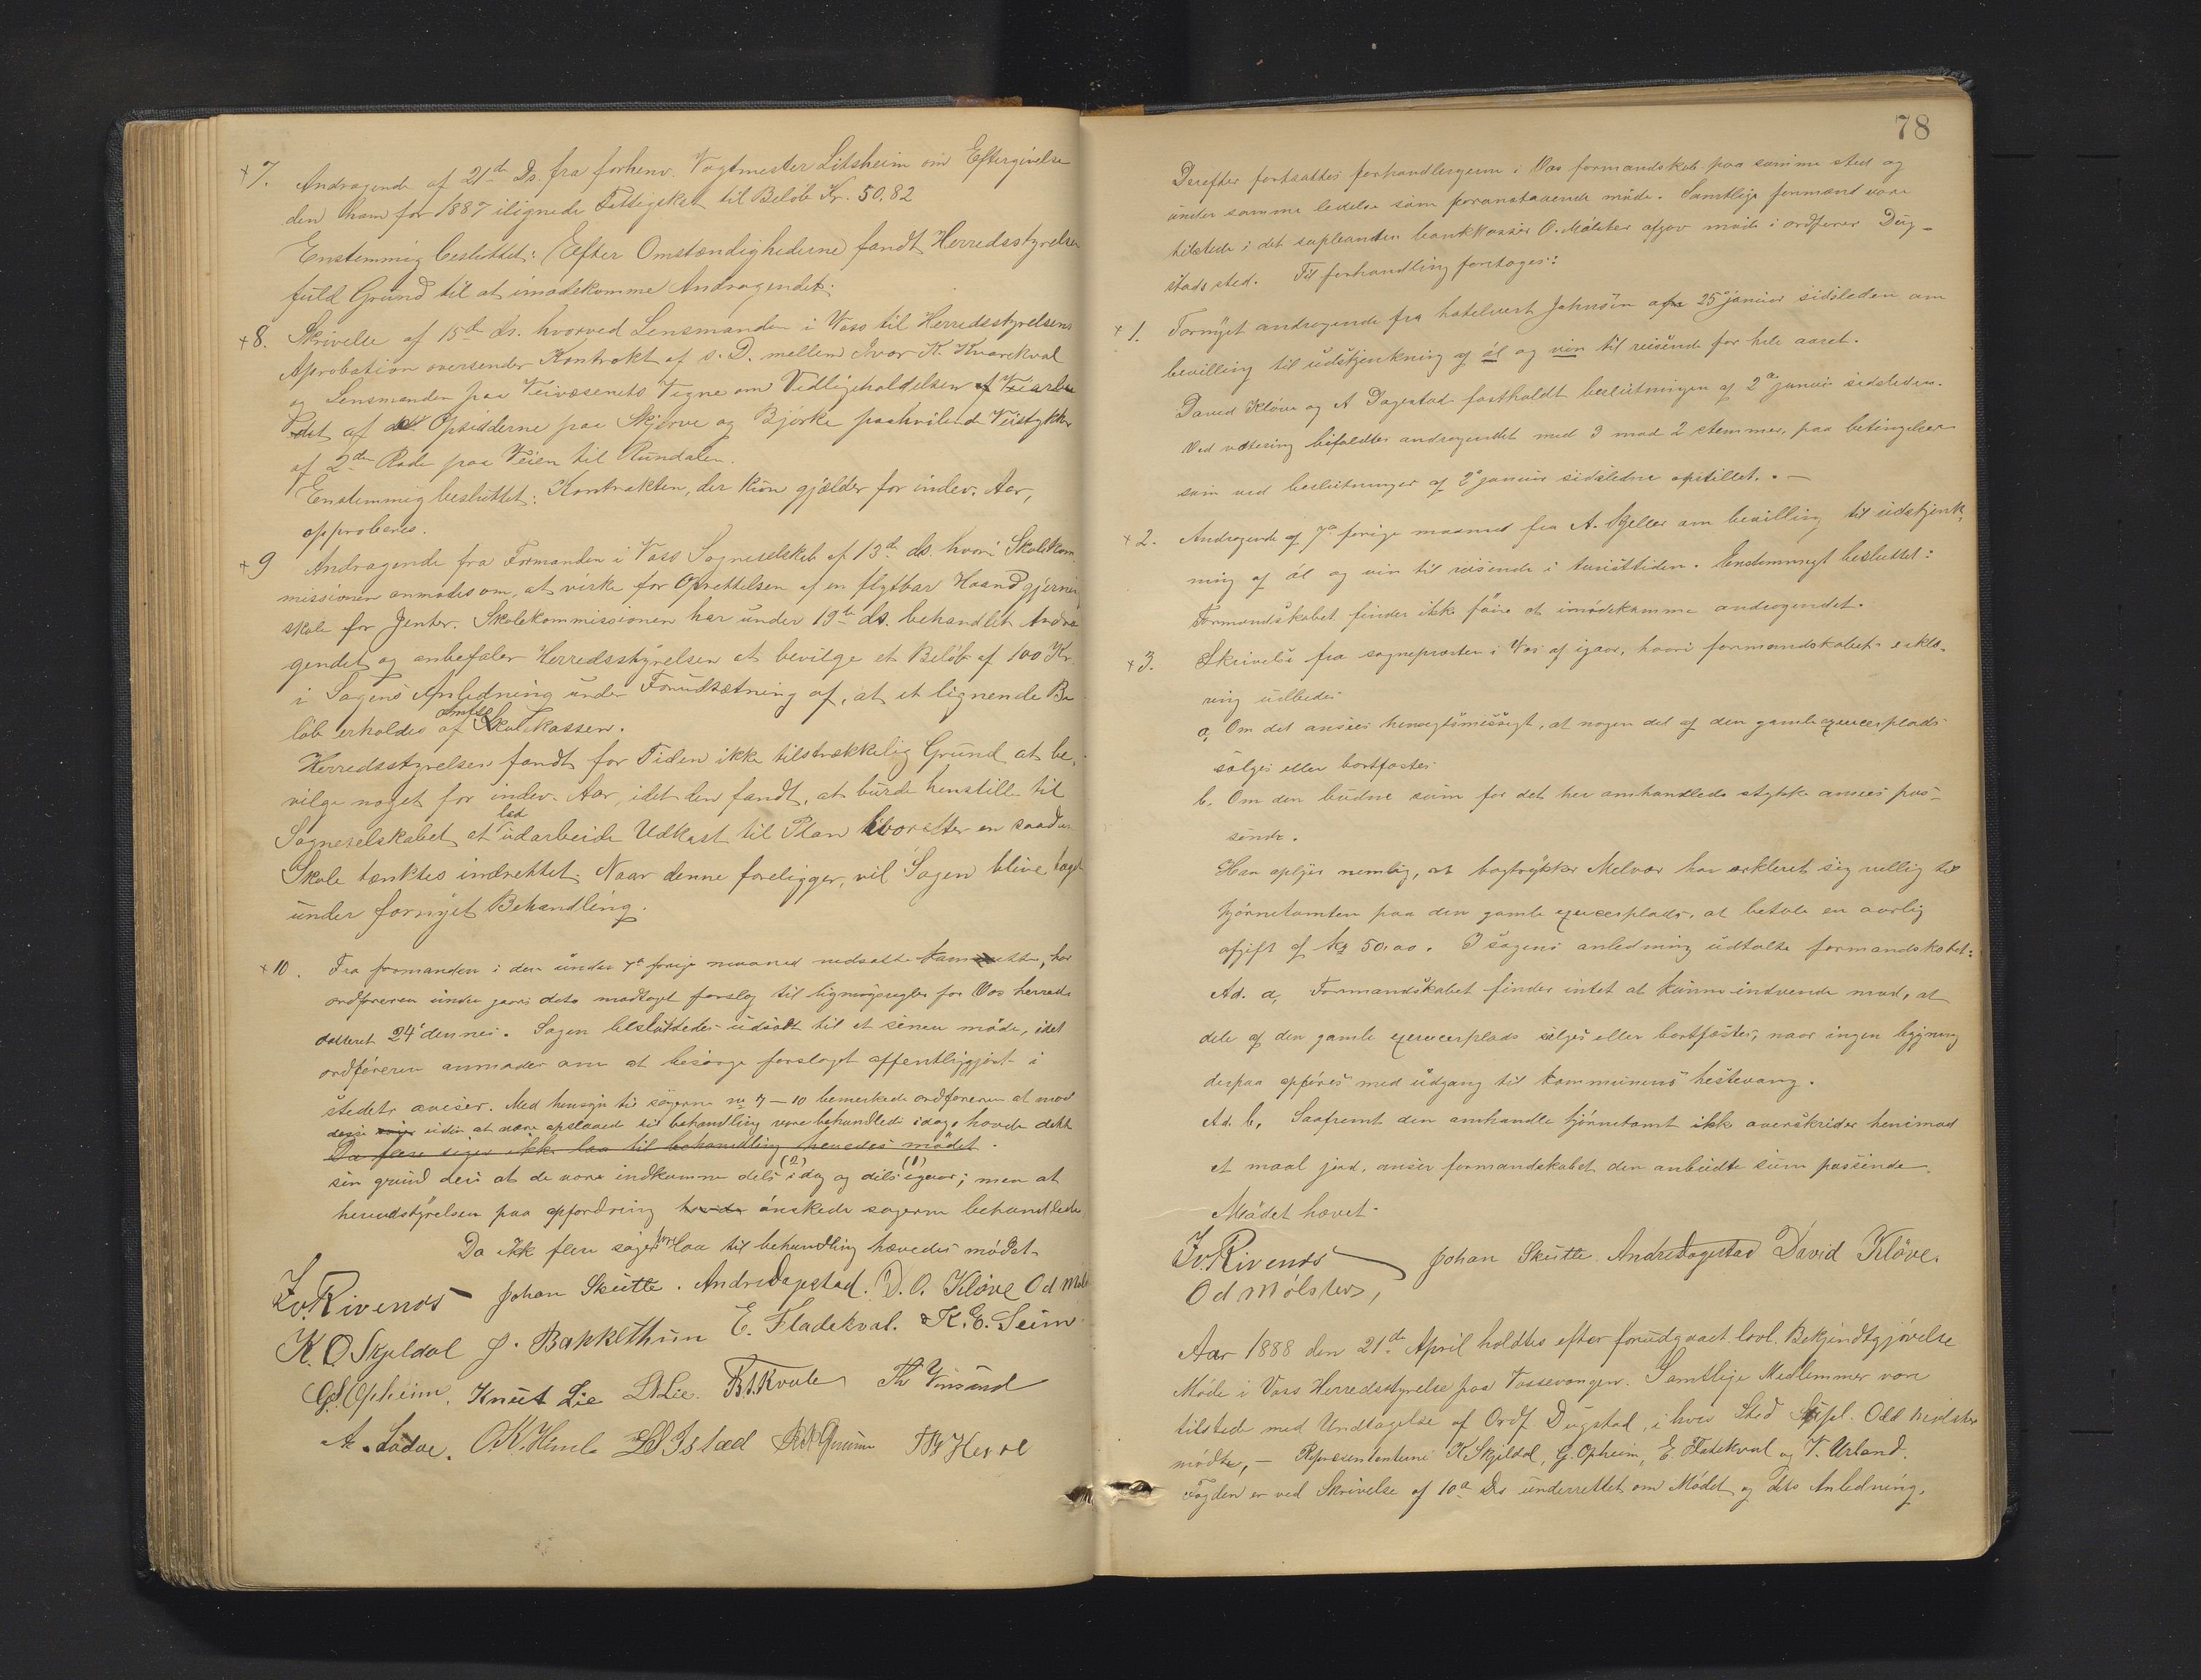 +7. Andragende af 21de Ds. fra forhenv. Vagtmester Litsheim om Eftergivelse
den ham for 1887 ilignede Fattigskat til Beløb Kr. 50.82
Enstemmig besluttet: Efter Omstændighederne fandt Herredsstyrelsen
fuld Grund til at imødekomme Andragendet.
+8. Skrivelse af 15de ds. hvorved Lensmanden i Voss til Herredsstyrelsens
Aprobation oversender Kontrakt af s. D. mellem Ivar K. Kvarekval
og Lensmanden paa Veivæsenets Vegne om Vedligeholdelsen af
det af Opsidderne paa Skjerve og Bjørke paahvilende Veistykke
af 2den Rode paa Veien til Rundalen.
Enstemmig besluttet: Kontrakten, der kun gjælder for indev. Aar,
approberes.
+9 Andragende fra Formanden i Voss Sogneselskab af 13de ds. hvori Skolekom
missionen anmodes om, at virke for Oprettelsen af en flytbar Haandgjernings
skole for Jenter. Skolekommissionen har under 19de ds. behandlet Andra
gendet og anbefaler Herredsstyrelsen at bevilge et Beløb af 100 Kr.
i Sagens Anledning under Forudsætning af, at et lignende Be
løb erholdes af Amtsskolekassen.
Herredsstyrelsen fandt for Tiden ikke tilstrækkelig Grund at be-
vilge noget for indev. Aar, idet den fandt, at burde henstille til
Sogneselskabet at lad udarbeide Udkast til Plan hvorefter en saadan
Skole tænktes indrettet. Naar denne foreligger, vil Sagen blive taget
under fornyet Behandling.
+10. Fra formanden i den under 7de forrige maaned nedsatte komite, har
ordføreren under gaars dato modtaget forslag til ligningsregler for Vos herred
datteret 24de dennes. Sagen besluttedes udsatt til et senere møde, idet
ordføreren anmodes om at besørge forslaget offentliggjort i
stedets aviser. Med hensyn til sagerne No 7-10 bemerkede ordføreren at naar
disse uden at være opslaaed til behandling vare behandlede idag, havde dette
Da flere sager ikke laa til behandling hævedes mødet.
sin grund deri at de vare indkomne dels (2) idag og dels (1) igaar; men at
herredstyrelsen paa opfordring ønskede sagerne behandlede.
Da ikk flere sager forelaa til behandling hævedes mødet.
Iv. Rivends Johan Skutle. Andr. Dagestad. D. O. Kløve Od Møls
K. O Skjeldal J. Bakkethun E. Fladekval. K. E. Seim
G. S. Opheim. Knut Lie L. Lie. B. Kvale Th Vinsand
A. Lødve. O. K. Himle L Istad Th Herre
78
Derefter fortsattes forhandlingerne i Vos formandskab paa samme sted og
under samme ledelse som foranstaaende møde. Samtlige formænd vare
tilstede i det supleanten bankkasser O. Mølster afgav møde i ordfører Dug-
stads sted. Til forhandling foretoges:
+1. Fornyet andragende fra hotelvert Johnsen af 25de januar sidsleden om
bevilling til udskjenkning af øl og vin til reisende for hele aaret.
David Kløve og A Dagestad fastholdt beslutningen af 2den januar sidsleden.
Ved votering bifaldtes andragendet med 3 mod 2 stemmer, paa betingelser
som ved beslutninger af 2den januar sidsledne opstillet. —
+2. Andragende af 7de forrige maaned fra A. Gjelle om bevilling til udskjenk-
ning af øl og vin til reisende i turisttiden. Enstemmigt besluttet:
Formandskabet finder ikke føie at imødekomme andragendet.
+3. Skrivelse fra sognepresten i Vos af igaar, hvori formandskabets erklæ-
ring udbedes
a, Om det ansees hensigtsmæssigt, at nogen del af den gamle exercerplads
sælges eller bortfæstes
b, Om den budne sum for det her omhandlede stykke ansees pas-
sende.
Han oplyser nemlig, at bogtrykker Melvær har erkleret sig villig til
hjørnetomten paa den gamle exercerplads, at betale en aarlig
afgift af kr 50.00. I sagens anledning udtalte formandskabet:
Ad. a, Formandskabet finder intet at kunne indvende mod, at
dele af den gamle exercerplads sælges eller bortfæstes, naar ingen bygning
derpaa opføres med udgang til kommunens hestevang.
Ad. b, Saafremt den omhandle hjørnetomt ikke overskrider henimod
et maal jord, anser formandskabet den anbudte sum passende.
Mødet hævet.
Iv. Rivends Johan Skutle. Andr. Dagestad David Kløve.
Od Mølster,
Aar 1888 den 21de April holdtes efter forudgaaet lovl. Bekjendtgjørelse
Møde i Voss Herredsstyrelse paa Vossevangen. Samtlige Medlemmer vare
tilstede med Undtagelse af Ordf. Dugstad, i hvis Sted Supl. Odd Mølster
mødte, — Repræsentanterne K. Skjeldal, G. Opheim, E. Fladekval og V. Urland.
Fogden er ved Skrivelse af 10de Ds underrettet om Mødet og dets Anledning.